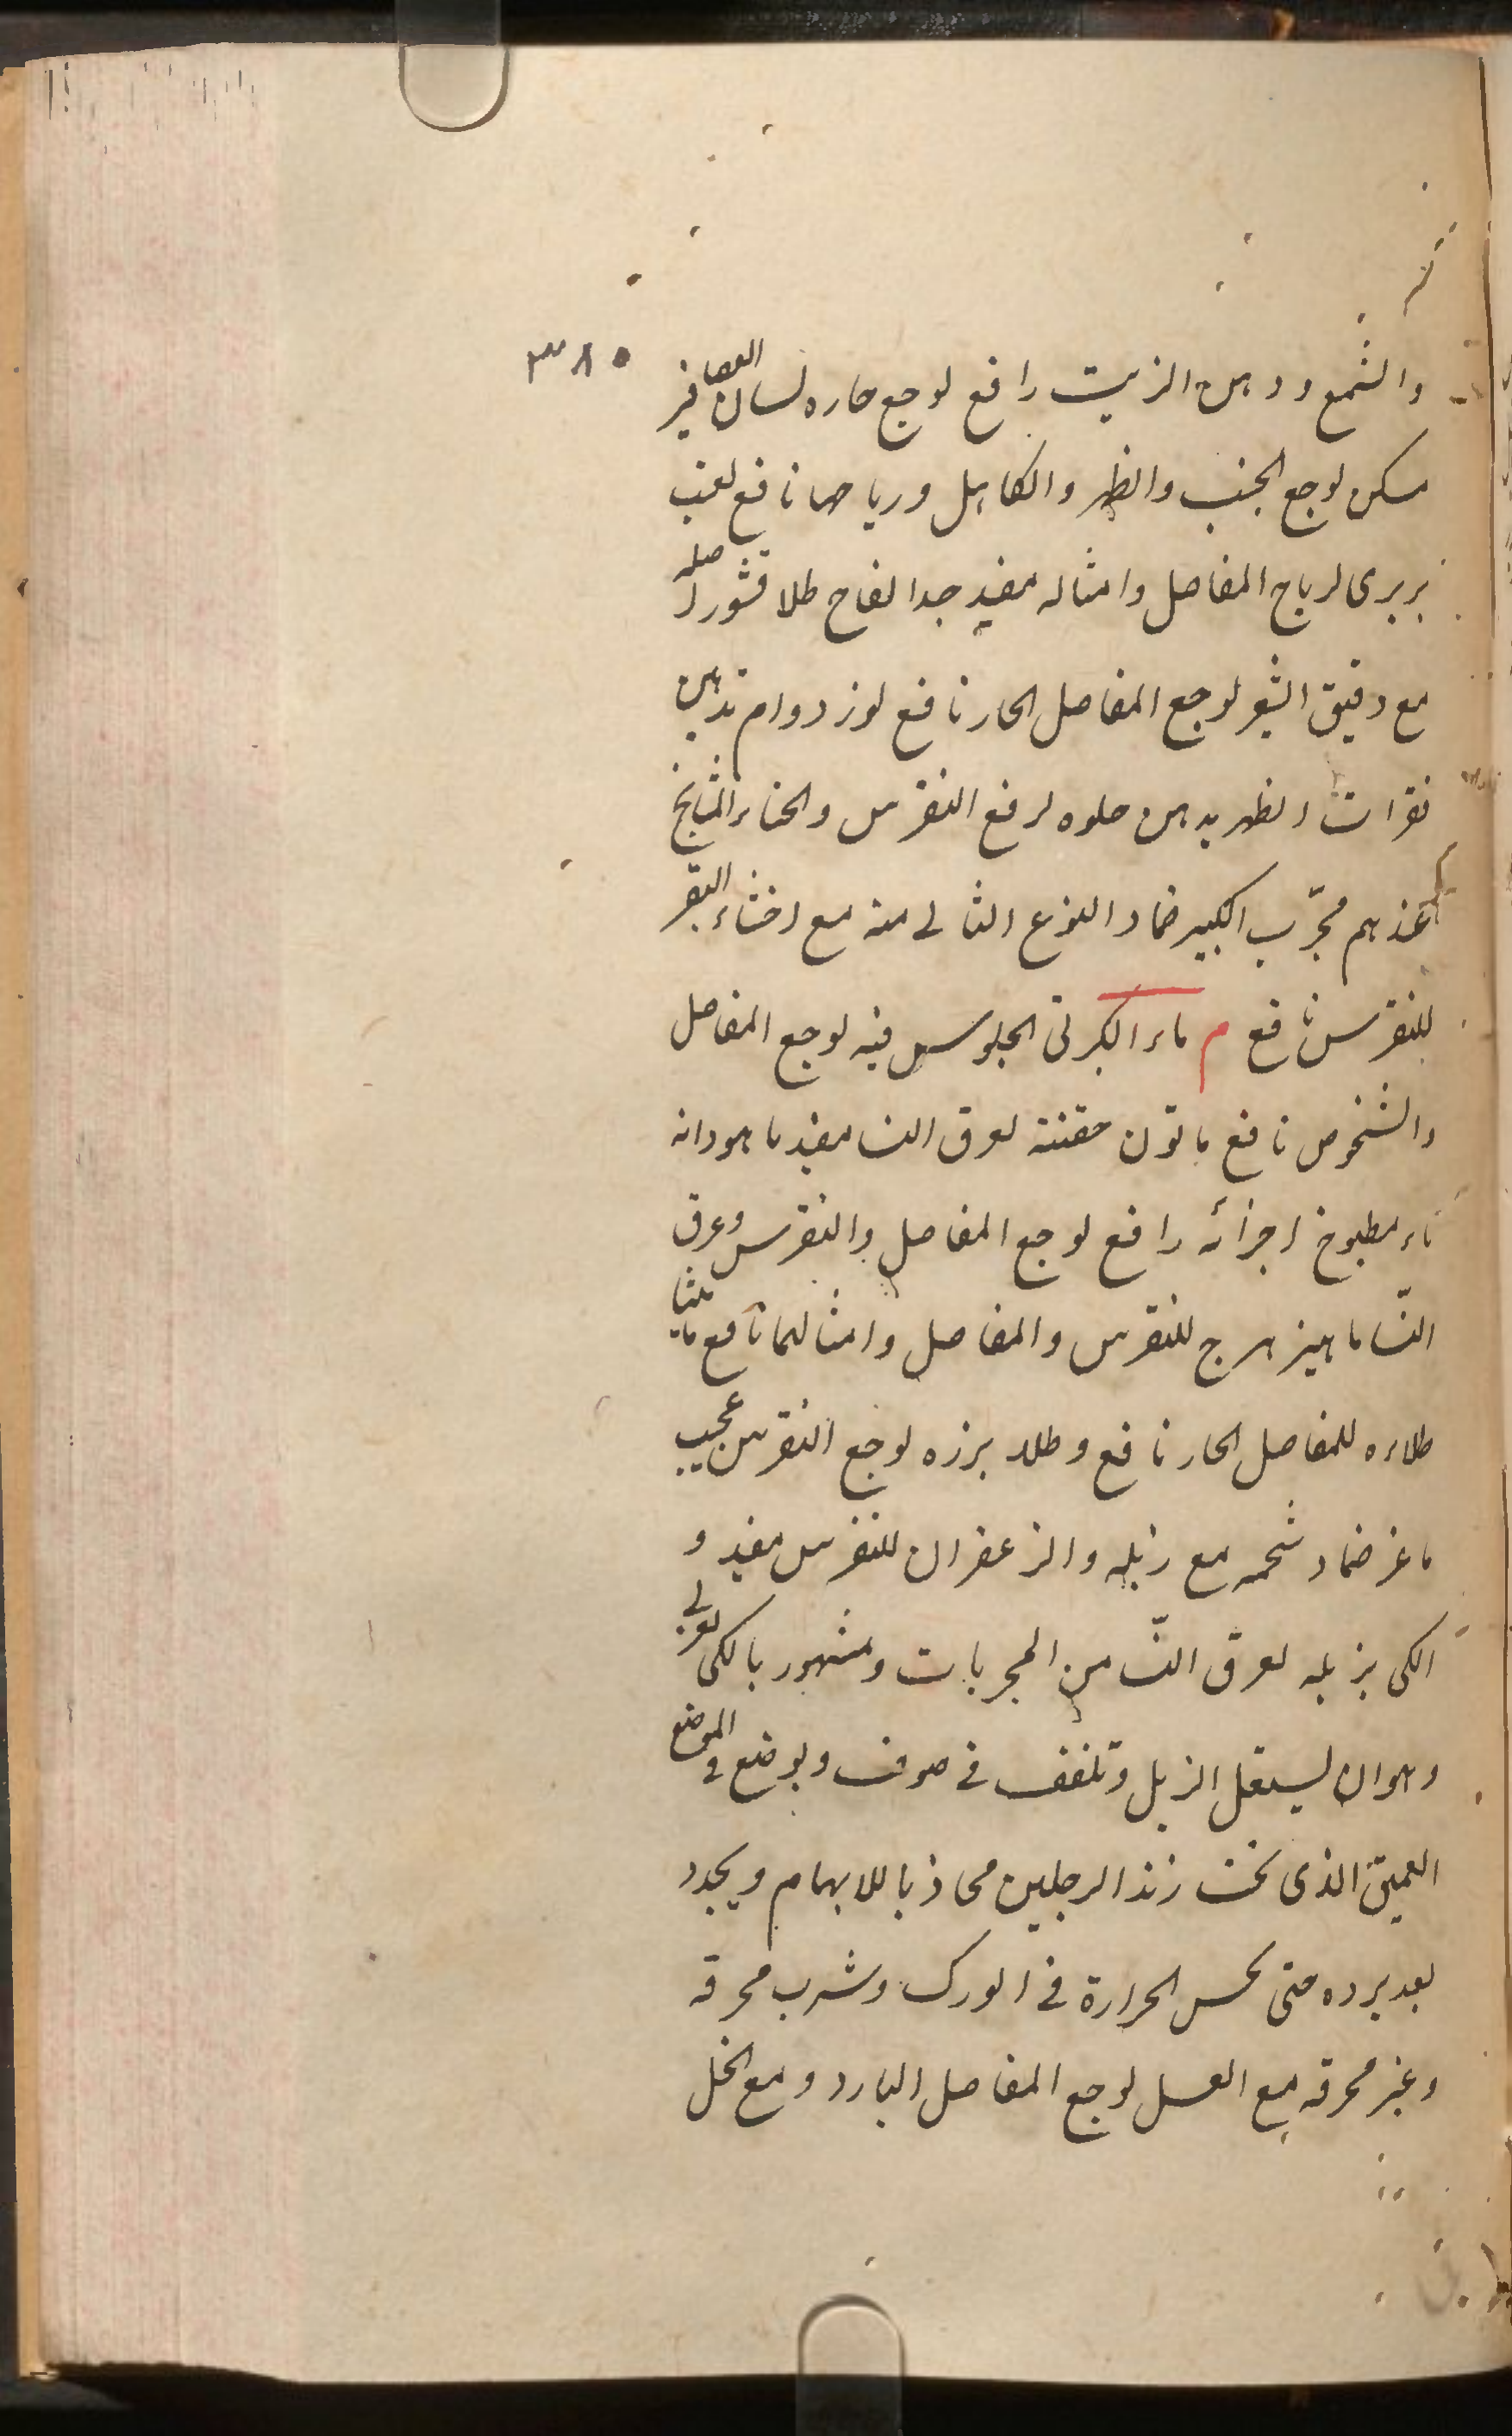 ٣٨٥
والشمع ودهن الزيت رافع لوجع حاره لسان العصافير
مسكن لوجع الجنب والظهر والكاهل ورياحها نافع لعبت
بربرى لرياح المفاصل وامثاله مفيد جدا لفاح طلا قشور اصله
مع دقيق الشعير لوجع المفاصل الحار نافع لوز دوام تدهين
فقرات الظهر بدهن حلوه لرفع النقرس والحناء المشايخ
عندهم مجرّب الكبير ضماد النوع الثانى منه مع اخثاء البقر
للنقرس نافع م ماء الكبرتى الجلوس فيه لوجع المفاصل
والشخوص نافع ماتون حقنته لعرق النسا مفيد ماهودانه
ماء مطبوخ اجزائه رافع لوجع المفاصل والنقرس وعرق
النّسا ماهيزهرج للنقرس والمفاصل وامثالهما نافع ماميثا
طلاءه للمفاصل الحار نافع وطلاء بزره لوجع النقرس عجيب
ماعز ضماد شحمه مع زبله والزعفران للنقرس مفيد و
الكى بزبله لعرق النّسا من المجربات ومشهور بالكى
وهو ان يستعمل الزبل وتلفف فى صوف ويوضع فى الموضع
العميق الذى تحت زند الرجلين محاذيا للابهام ويجدد
بعد برده حتى يحس الحرارة فى الورك وشرب محرقه
وغير محرقه مع العسل لوجع المفاصل البارد ومع الخل